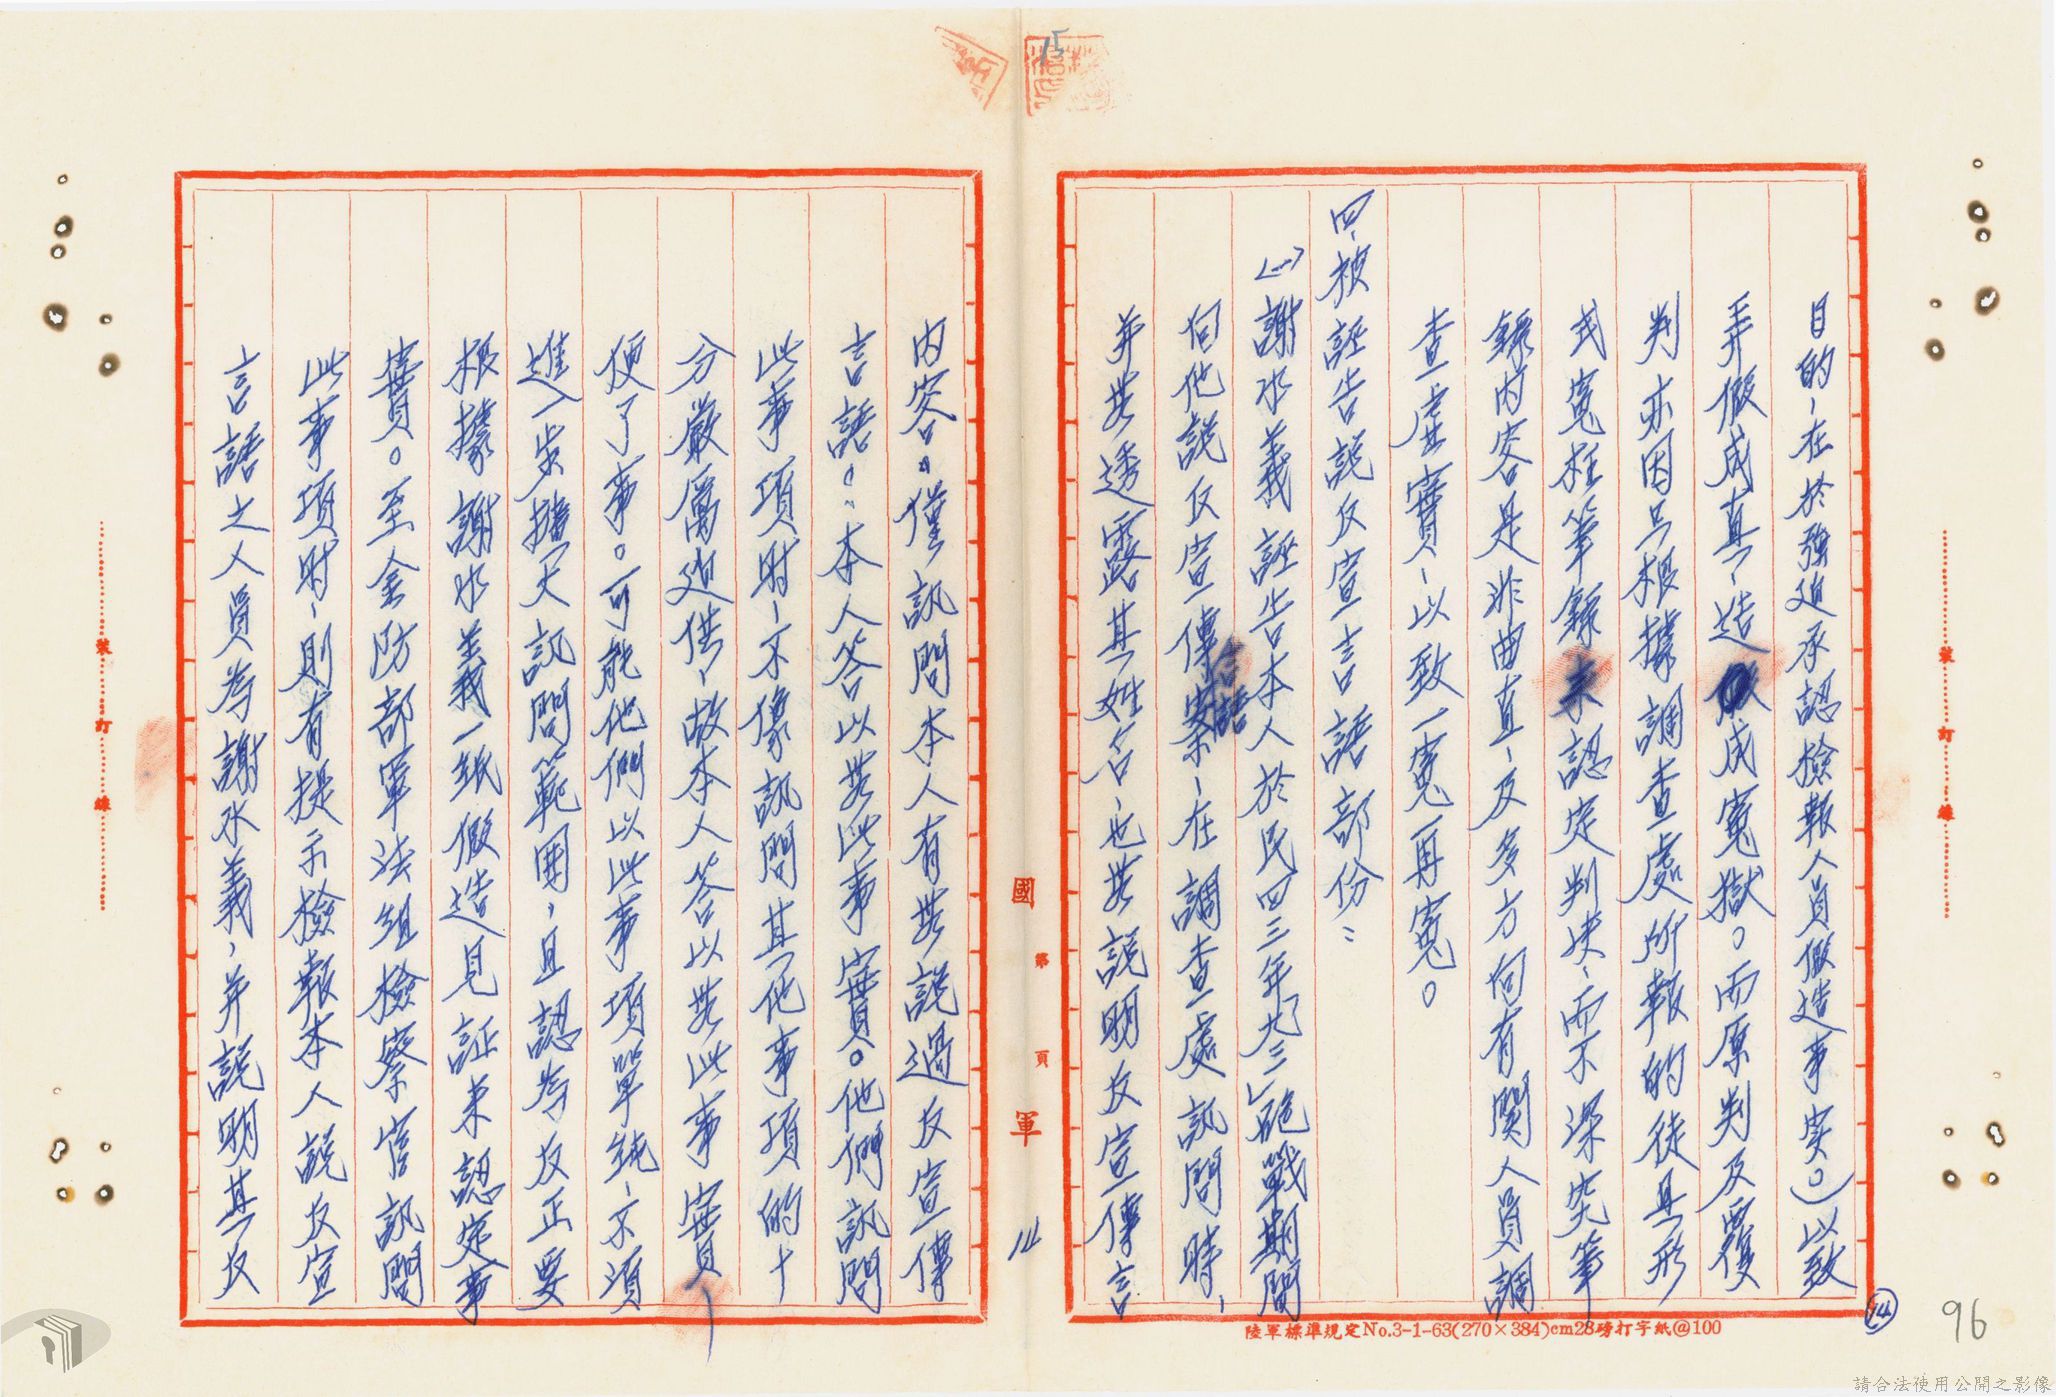 目的，在於強迫承認檢報人員假造事实。）以致
弄假成真，造成冤獄。而原判及覆
判亦因只根據調查處所報的徒具形
式冤枉筆錄來認定判決，而不深究筆
錄內容是非曲直，及多方向有関人員調
查其實，以致一冤再冤。
四、被誣告說反宣言語部份：
(一)謝水義誣告本人於民四三年九三砲戰期間
向他說反宣傳言語案，在調查處訊問時，
并無透露其姓名，也無說明反宣傳言
內容。僅訊問本人有無說過反宣傳
言語。：本人答以無此事實。他們訊問
此事項時，不像訊問其他事項的十
分嚴厲迫供，故本人答以無此事實，
便了事。可能他們以此事項單純，不須
進一步擴大訊問範圍，且認為反正要
根據謝水義一紙假造見証來認定事
實。至金防部軍法組檢察官訊問
此事項時，則有提示檢報本人說反宣
言語之人員為謝水義，并說明其反
國軍
第 頁
14
15
14
96
裝 訂 線
裝 訂 線
陸軍標準規定No.3-1-63(270×384)cm28磅打字紙@100
請合法使用公開之影像